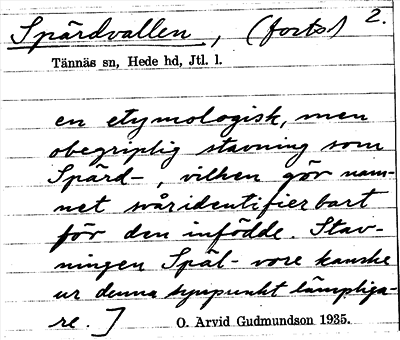 Spärdvallen, (forts) 2.
Tännäs sn, Hede hd, Jtl. l.
en etymologisk, men
obegriplig stavning som
Spärd-, vilken gör nam-
net svåridentifierbart
för den infödde. Stav-
ningen Späl- vore kanske
ur denna synpunkt lämpliga-
re.]
O. Arvid Gudmundson 1935.